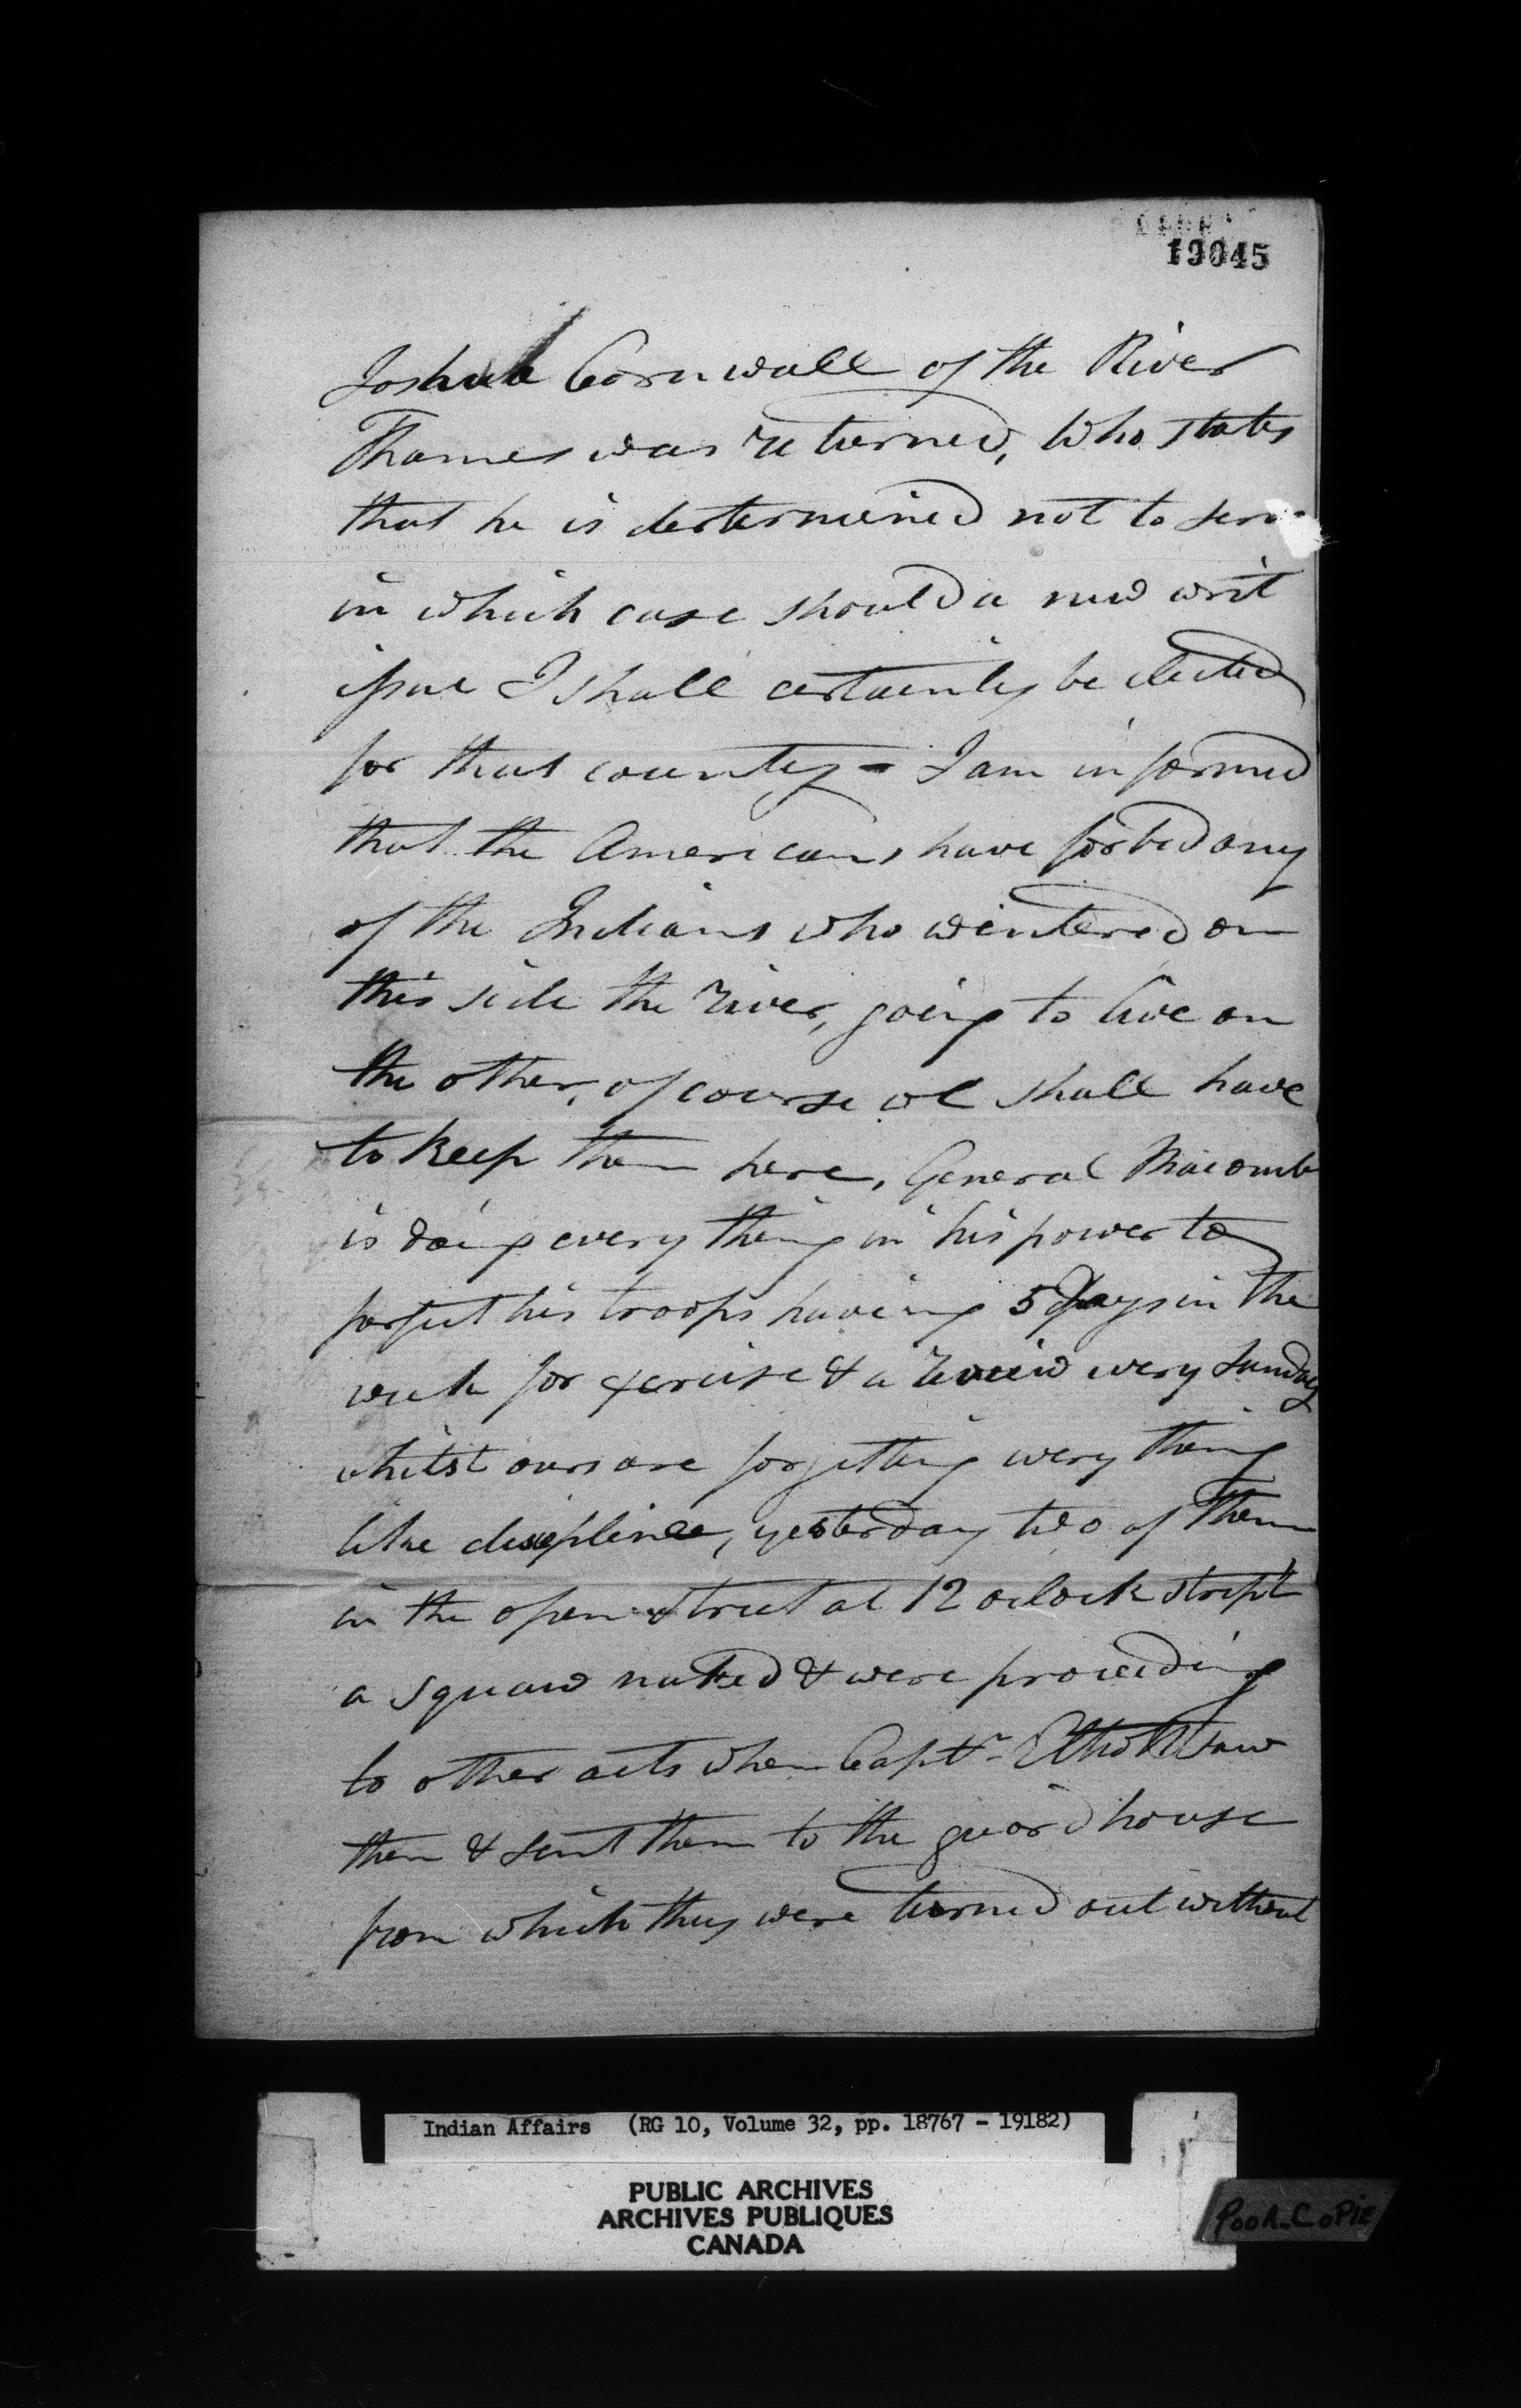 19045
Joshua Cornwall of the River
Thames was returned, who states
that he is destermined not to serve
in which case should a new writ
issue I shall certainly be elected
for that county - I am informed
that the Americans have forbid any
of the Indians who wintered on
this side the river, going to live on
the other, of course we shall have
to keep them here, General Macomb
is doing every thing in his power to
perfect his troops having 5 days in the
week for exercise & a review every sunday
whilst ours are forgetting every thing
like discipline, yesterday two of them
in the open street at 12 oclock stript
a squaw naked & were proceeding
to other acts when Captn Elliott saw
them & sent them to the guard house
from which they were turned out without
Indian Affairs (RG 10, Volume 32, pp. 18767 - 19182)
PUBLIC ARCHIVES
ARCHIVES PUBLIQUES
CANADA
POOR COPIE